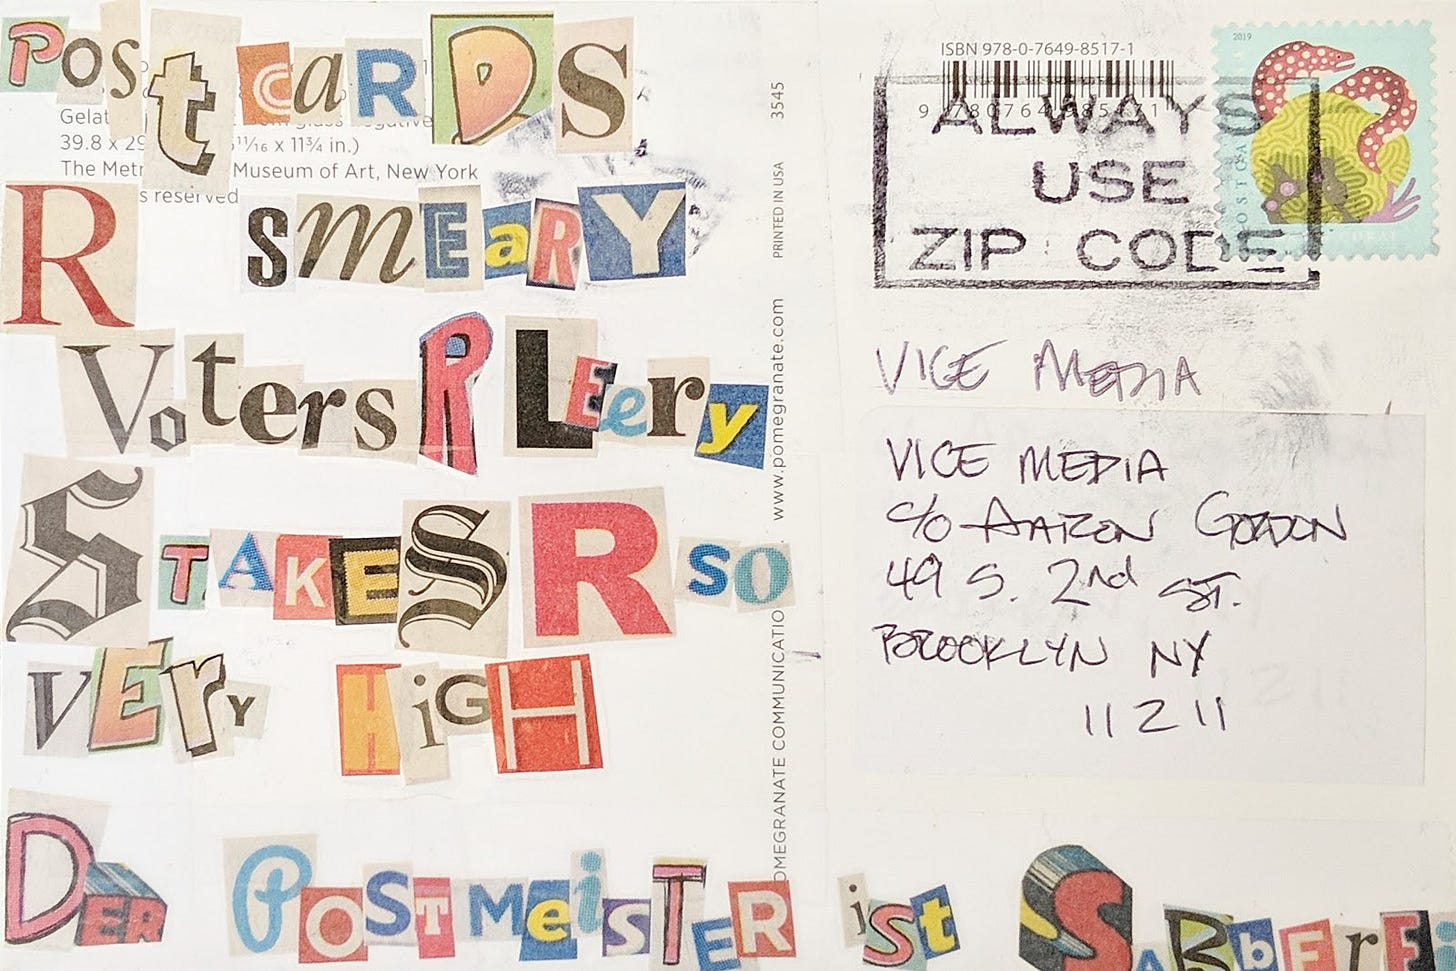 PostcaRDS
R smEaRY
Voters R LEery
STAKES R so
vEry HiGH
DER PoSTMeiSTER isT SABbFrE
Gelat
39.8 x 29 11/16 x 11¾ in.)
The Metr Museum of Art, New York
s reserved
3545
PRINTED IN USA
www.pomegranate.com
OMEGRANATE COMMUNICATIO
ISBN 978-0-7649-8517-1
ALWAYS
USE
ZIP CODE
2019
VICE MEDIA
VICE MEDIA
c/o AARON GORDON
49 S. 2nd ST.
BROOKLYN NY
11211